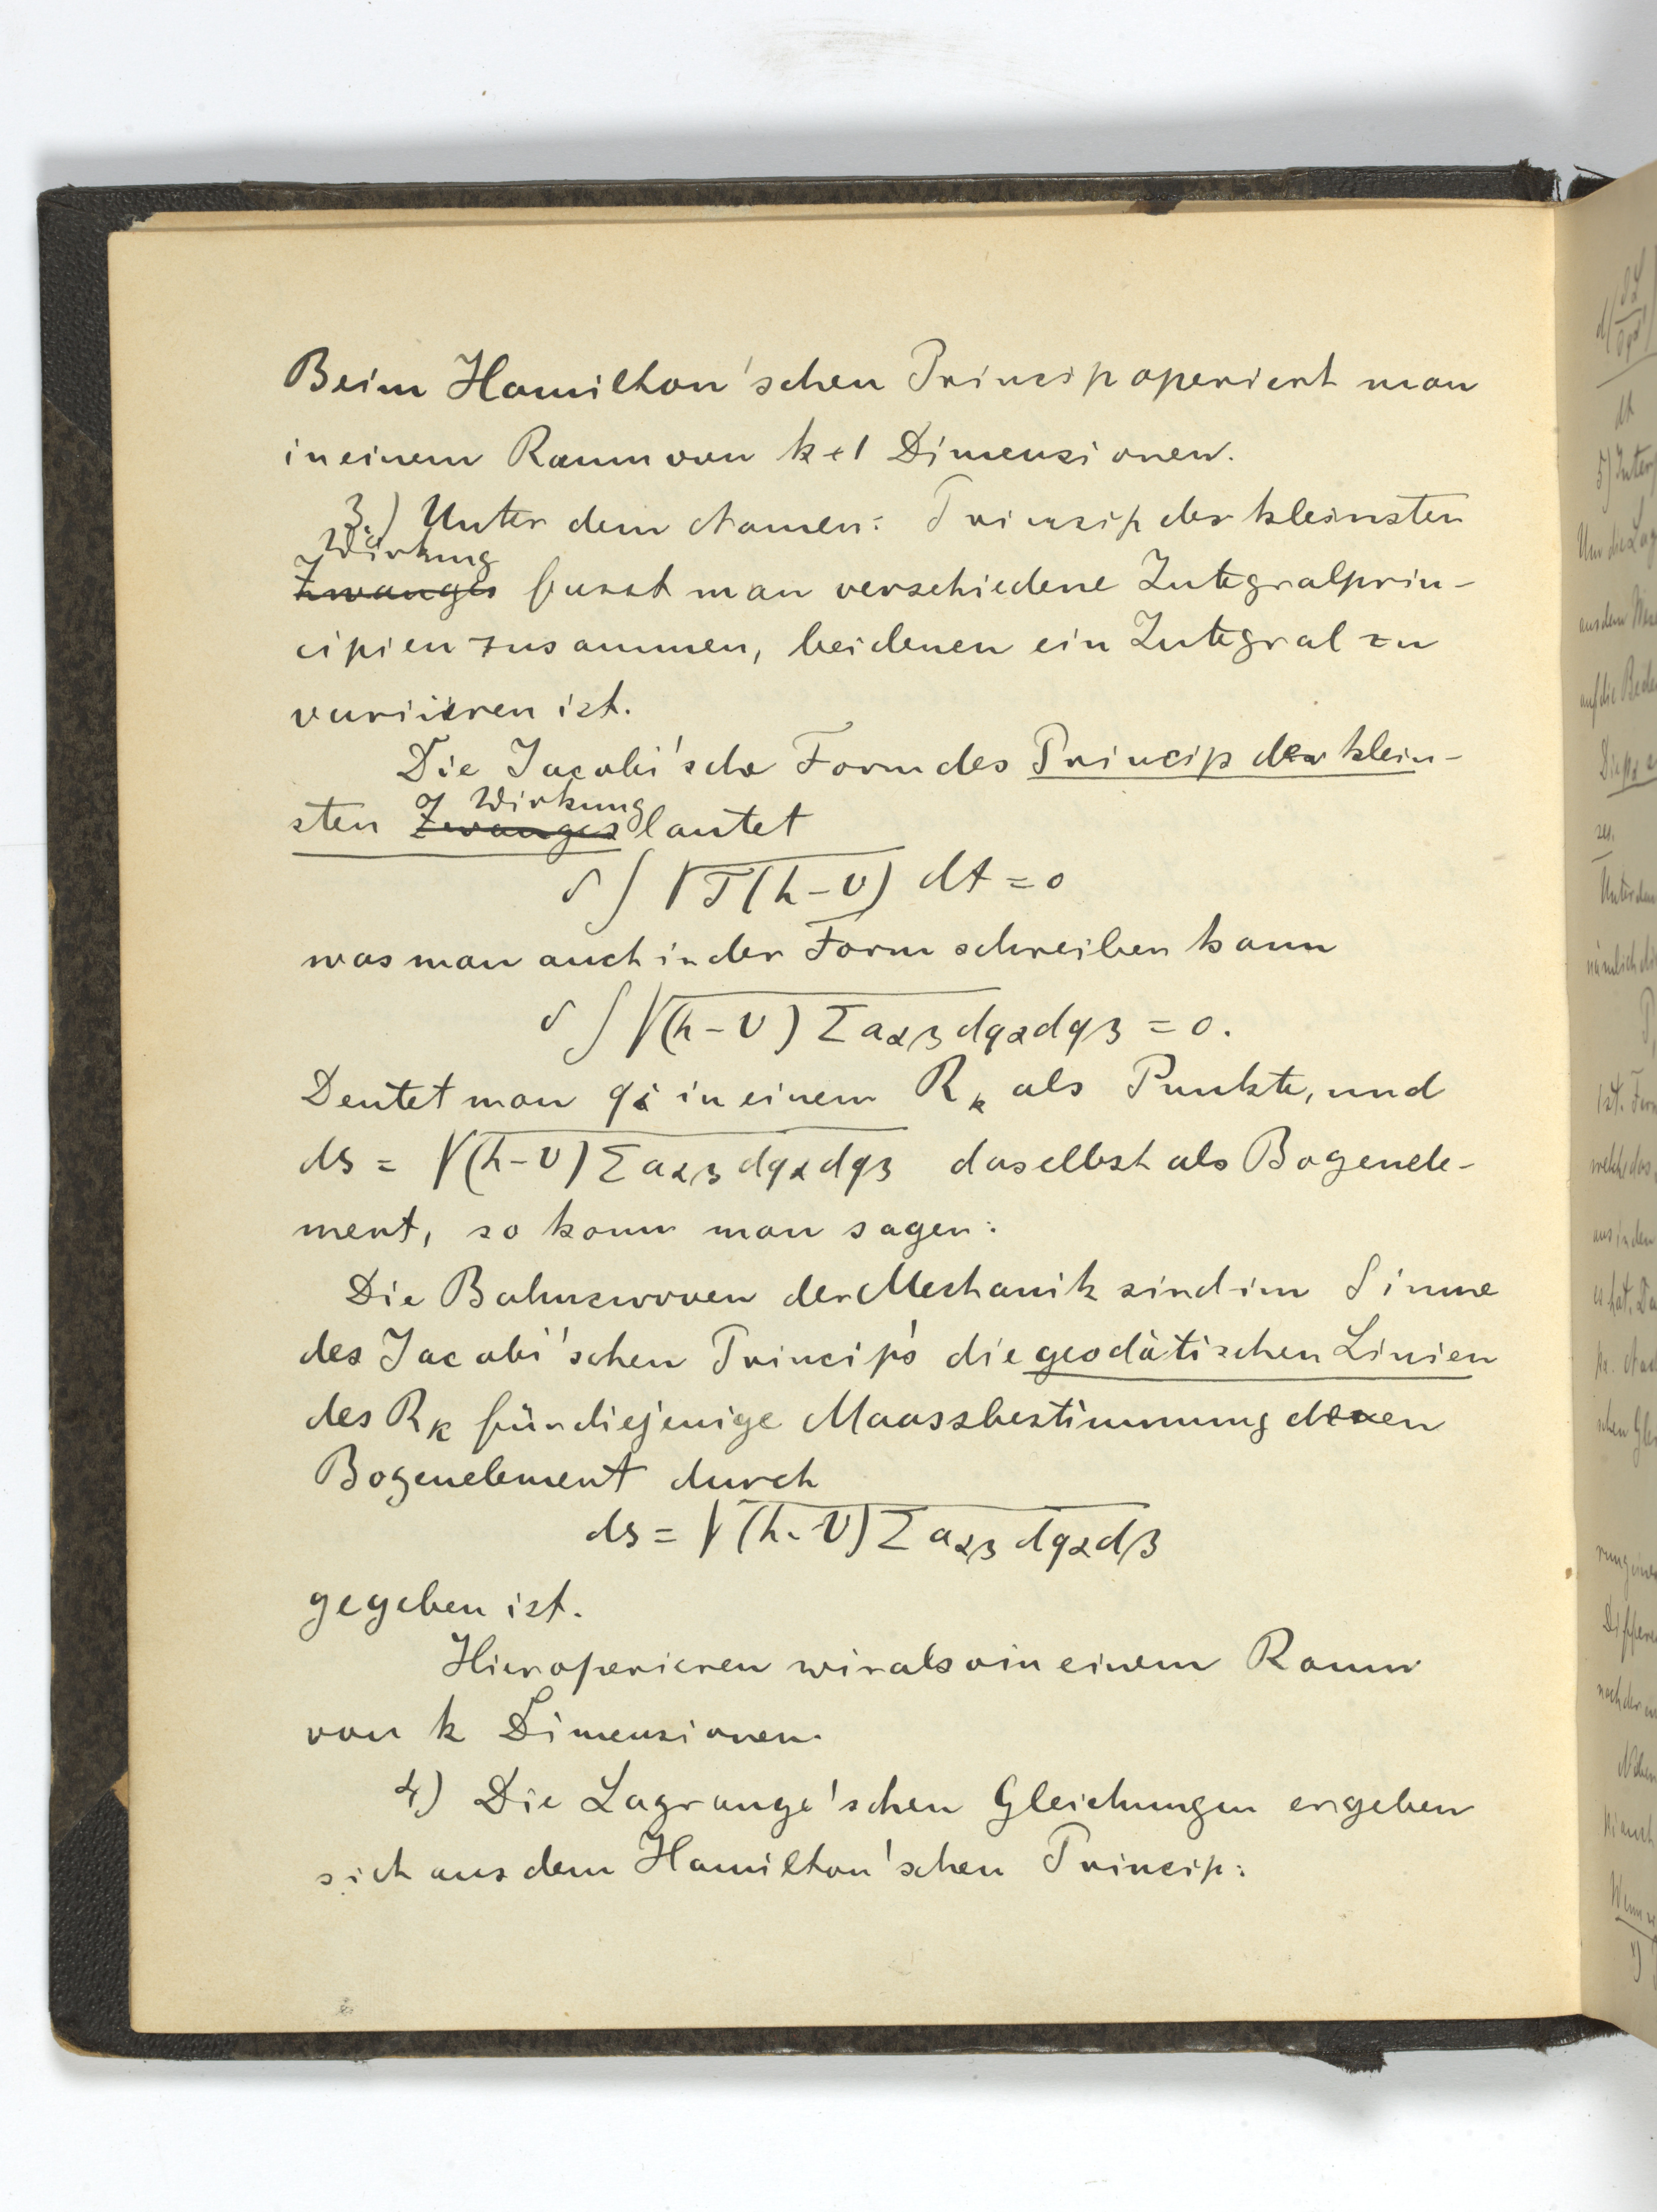 Beim Hamilton'schen Princip operiert man
in einem Raum von k+1 Dimensionen.
3.) Unter dem Namen: Princip der kleinsten
Wirkung
Zwanges fasst man verschiedene Integralprin-
cipien zusammen, bei denen ein Integral zu
variieren ist.
Die Jacobi'sche Form des Princip der klein-
sten Zwanges Wirkung lautet
δ∫√T(h-U) dt = 0
was man auch in der Form schreiben kann
δ∫√(h-U) Σ aαβ dqα dqβ = 0.
Deutet man qi in einem Rk als Punkte, und
ds = √(h-U) Σ aαβ dqα dqβ daselbst als Bogenele-
ment, so kann man sagen:
Die Bahncurven der Mechanik sind im Sinne
des Jacobi'schen Princip's die geodätischen Linien
des Rk für diejenige Maassbestimmung deren
Bogenelement durch
ds = √(h-U) Σ aαβ dqα dβ
gegeben ist.
Hier operieren wir also in einem Raum
von k Dimensionen.
4) Die Lagrange'schen Gleichungen ergeben
sich aus dem Hamilton'schen Princip: